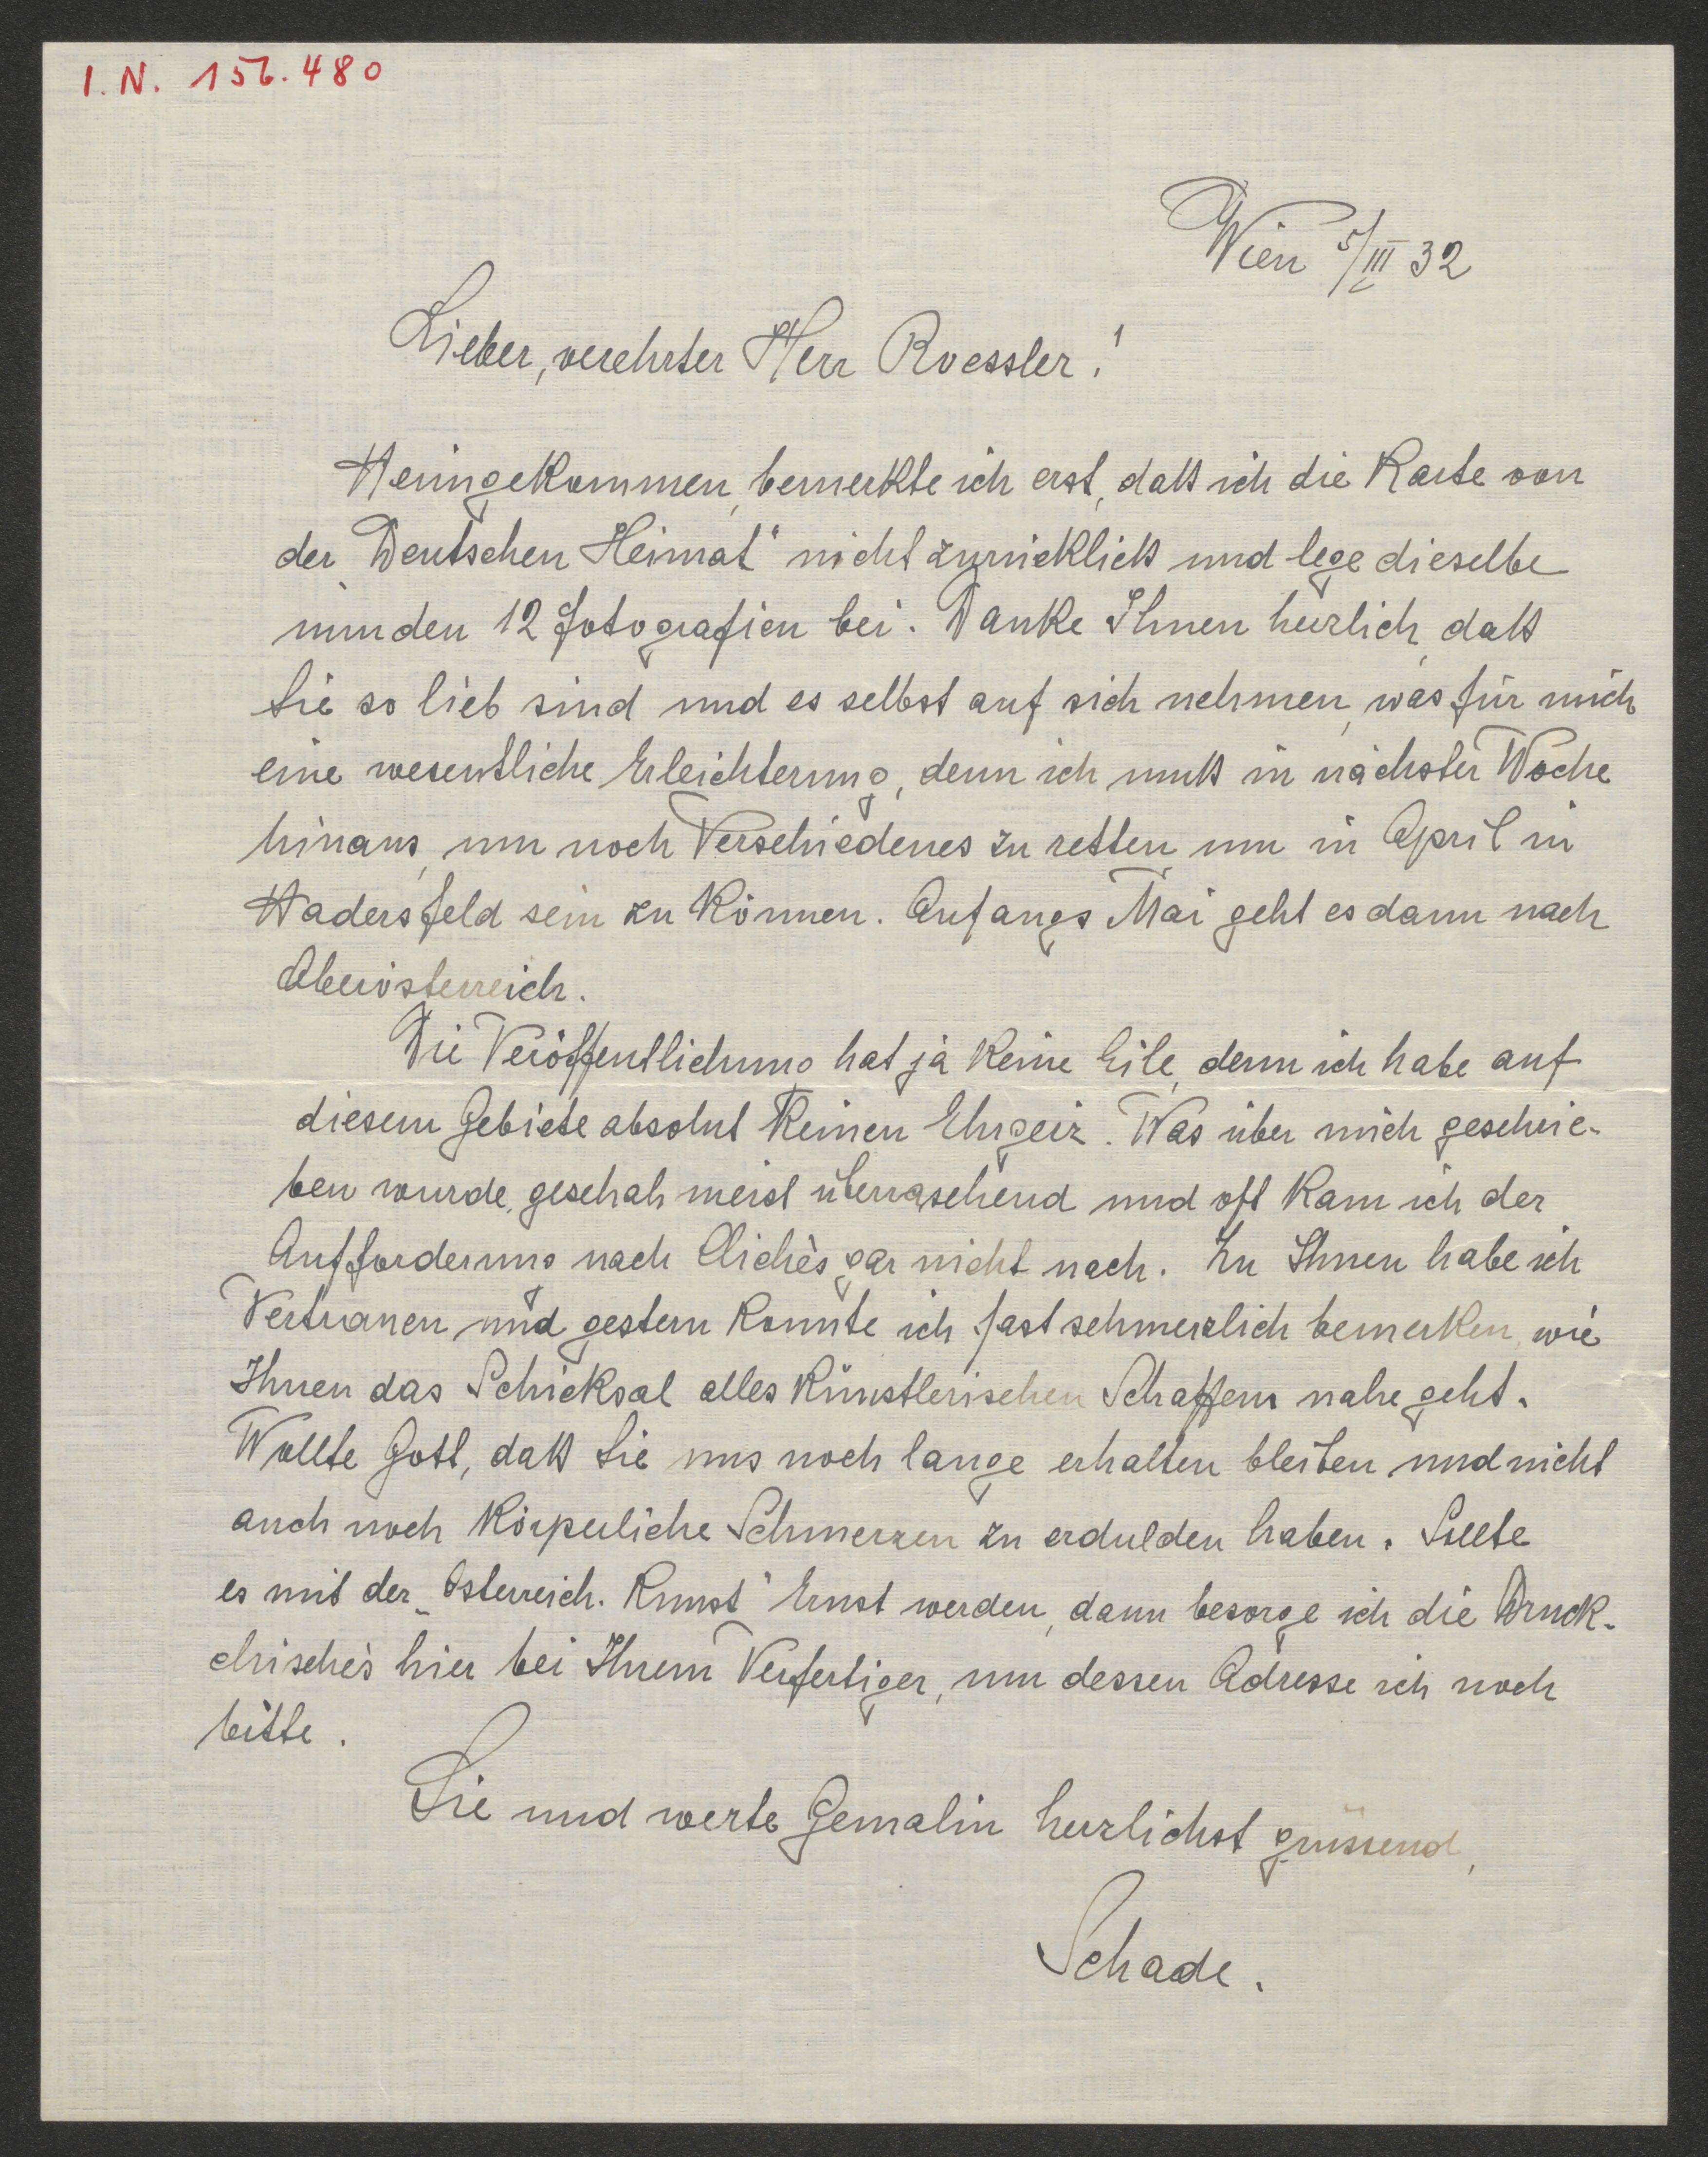 I.N. 156.480
Wien 5/III 32
Lieber, verehrter Herr Roessler!
Heimgekommen, bemerkte ich erst, daß ich die Karte von
der "Deutschen Heimat" nicht zurückließ und lege dieselbe
nun den 12 Fotografien bei. Danke Ihnen herzlich, daß
Sie so lieb sind und es selbst auf sich nehmen, was für mich
eine wesentliche Erleichterung, denn ich muß in nächster Woche
hinaus, um noch Verschiedenes zu retten um in April in
Hadersfeld sein zu können. Anfangs Mai geht es dann nach
Oberösterreich.
Die Veröffentlichung hat ja keine Eile, denn ich habe auf
diesem Gebiete absolut keinen Ehrgeiz. Was über mich geschrie-
ben wurde, geschah meist überraschend und oft kam ich der
Aufforderung nach Clichès gar nicht nach. Zu Ihnen habe ich
Vertrauen und gestern konnte ich fast schmerzlich bemerken, wie
Ihnen das Schicksal alles künstlerischen Schaffens nahe geht.
Wollte Gott, daß Sie uns noch lange erhalten bleiben und nicht
auch noch körperliche Schmerzen zu erdulden haben. Sollte
es mit der "Österreich. Kunst" Ernst werden, dann besorge ich die Druck-
chischés hier bei Ihrem Verfertiger, um dessen Adresse ich noch
bitte.
Sie und werte Gemalin herzlichst grüssend,
Schade.